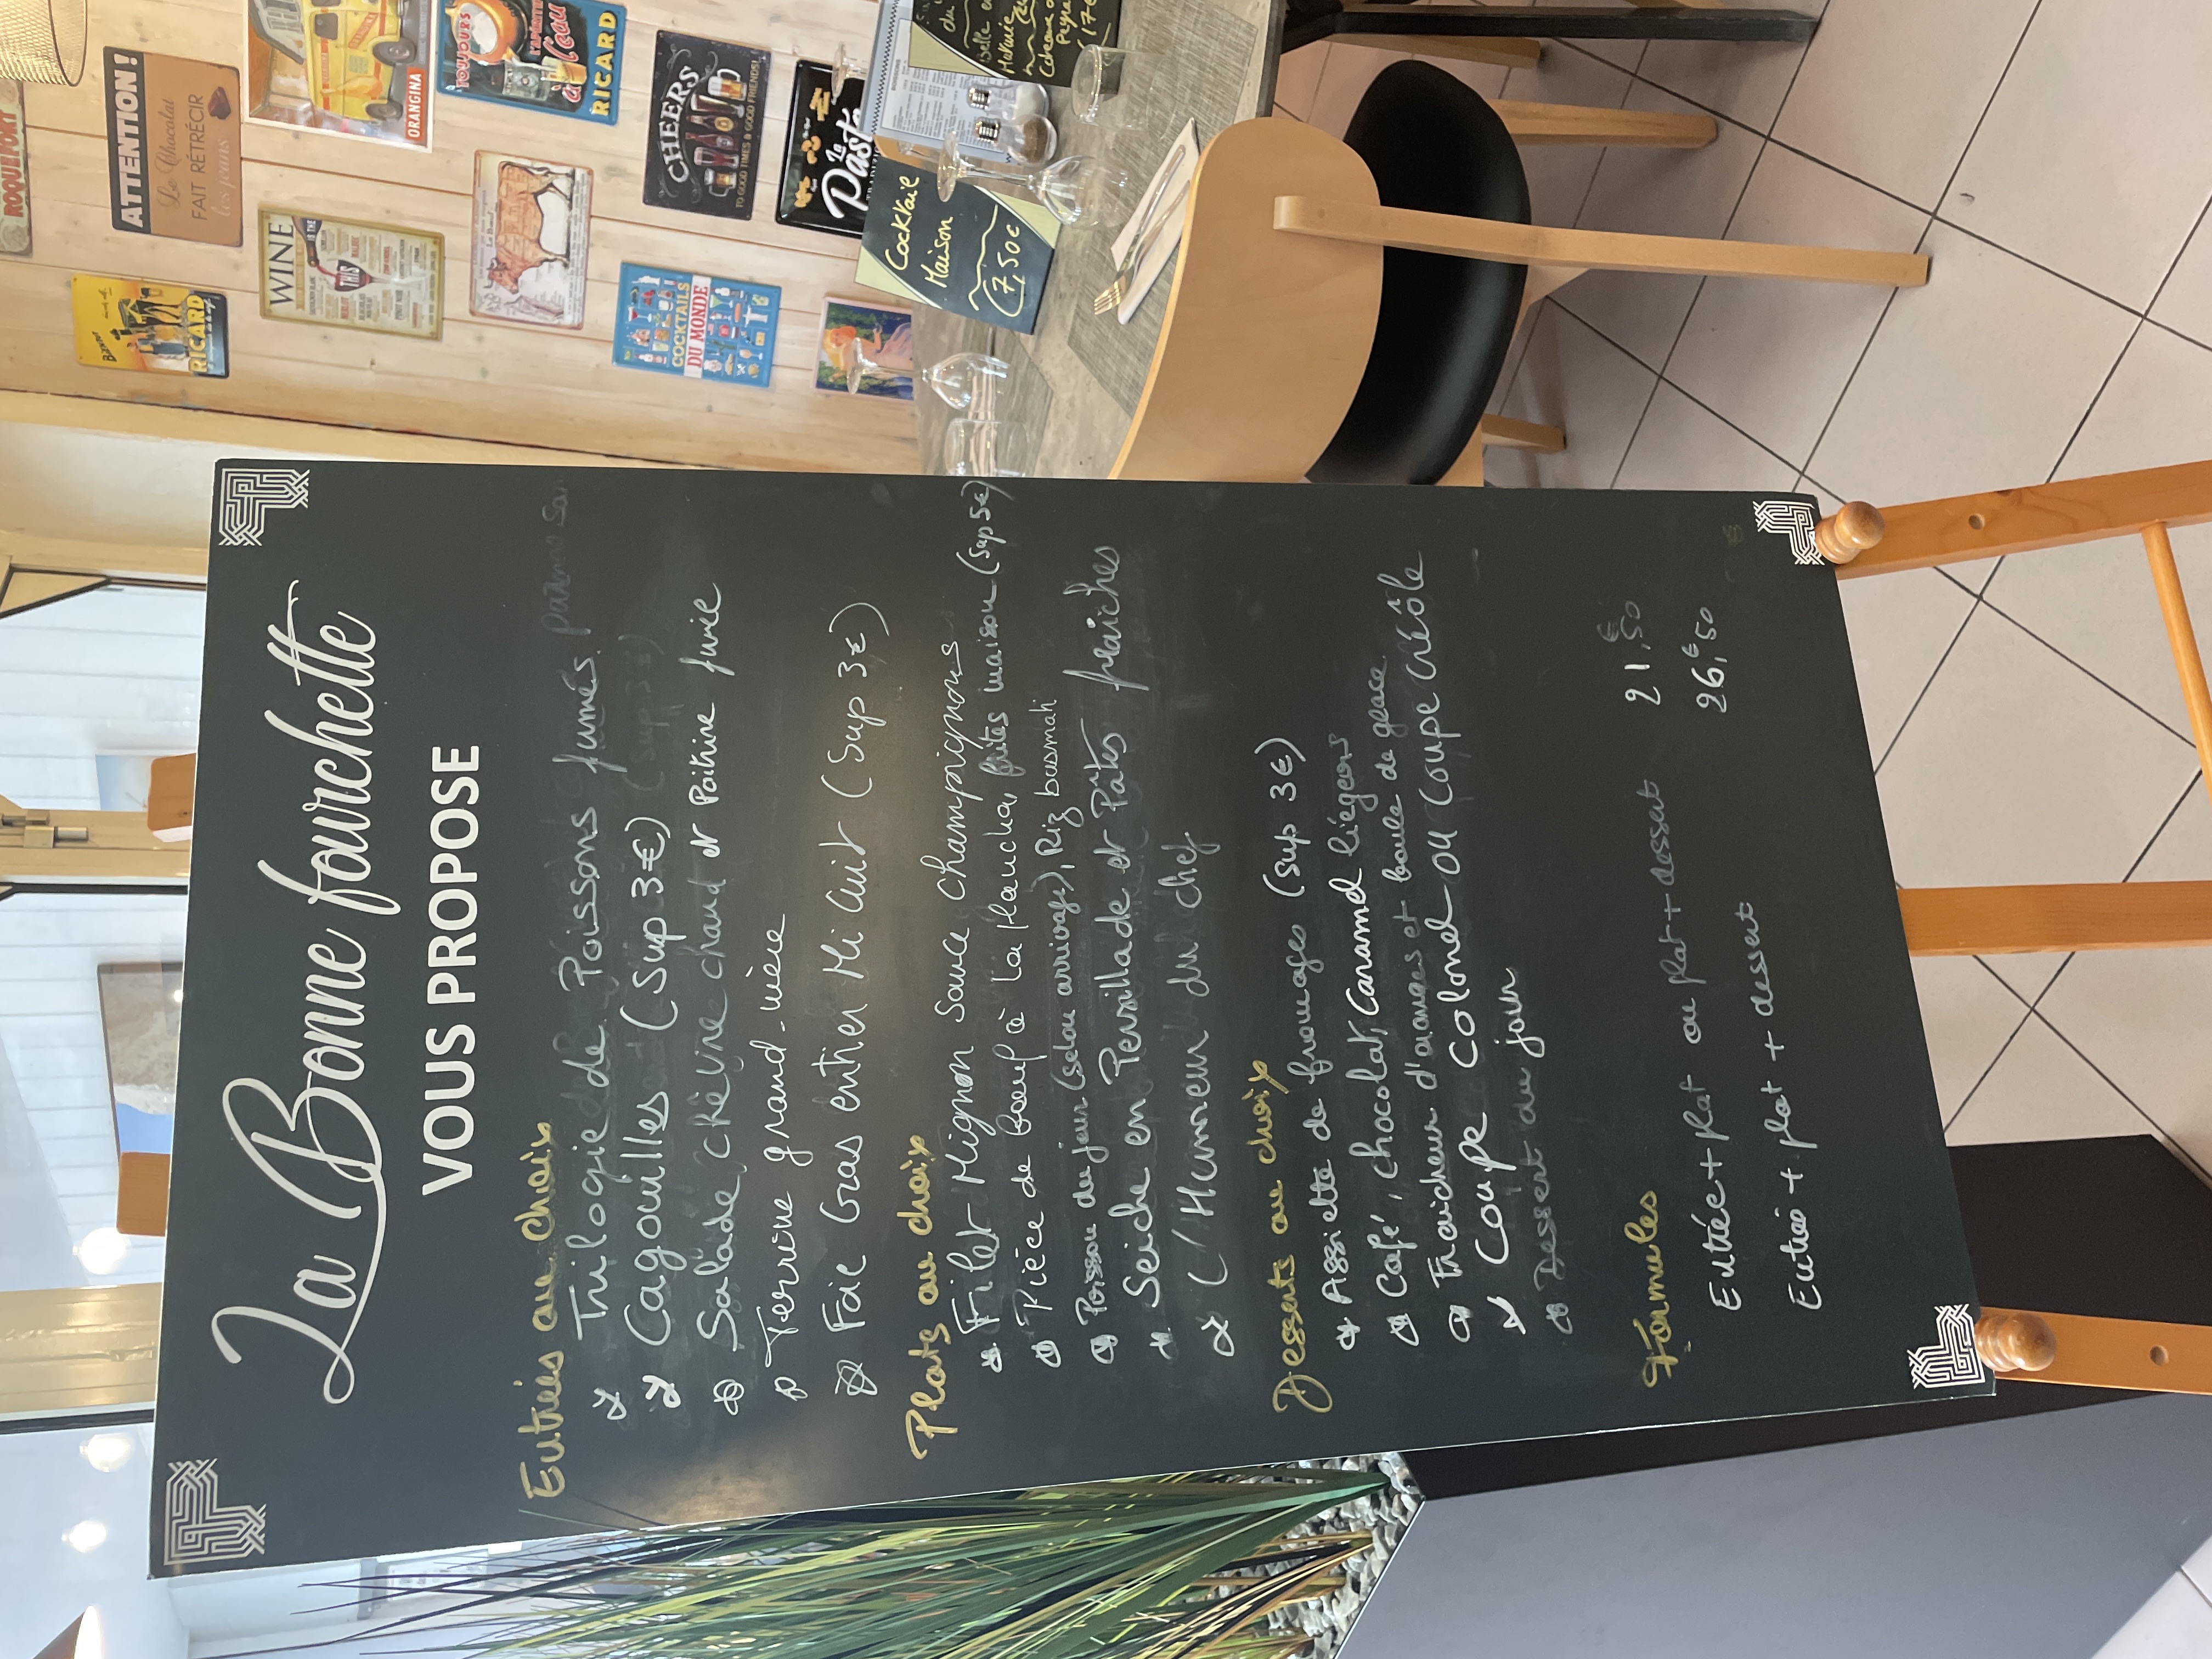 La Bonne fourchette
VOUS PROPOSE
Entrées au choix
Trilogie de Poissons fumés
Cagouilles (Sup 3€)
Salade chèvre chaud et Poitrine fumée
Terrine grand-mère
Foie Gras entier Mi Cuit (Sup 3€)
Plats au choix
Filet Mignon sauce champignons
Pièce de boeuf à la plancha, frites maison (Sup 5€)
Poisson du jour (selon arrivage), Riz basmati
Seiche en Persillade et Pâtes fraîches
L'Humeur du chef
Desserts au choix
Assiette de fromages (Sup 3€)
Café, chocolat, Caramel liégeois
Fraicheur d'oranges et boule de glace
Coupe Colonel ou Coupe créole
Dessert du jour
Formules
Entrée + plat ou plat + dessert 21,€50
Entrée + plat + dessert 26,€50
ROQUEFORT
ATTENTION!
Le Chocolat
FAIT RÉTRÉCIR
les jeans
ORANGINA
TOUJOURS
RICARD
CHEERS
TO GOOD TIMES & GOOD FRIENDS!
La
Pasta
RICARD
WINE
THIS
COCKTAILS
DU MONDE
Cocktail
Maison
(7,50€